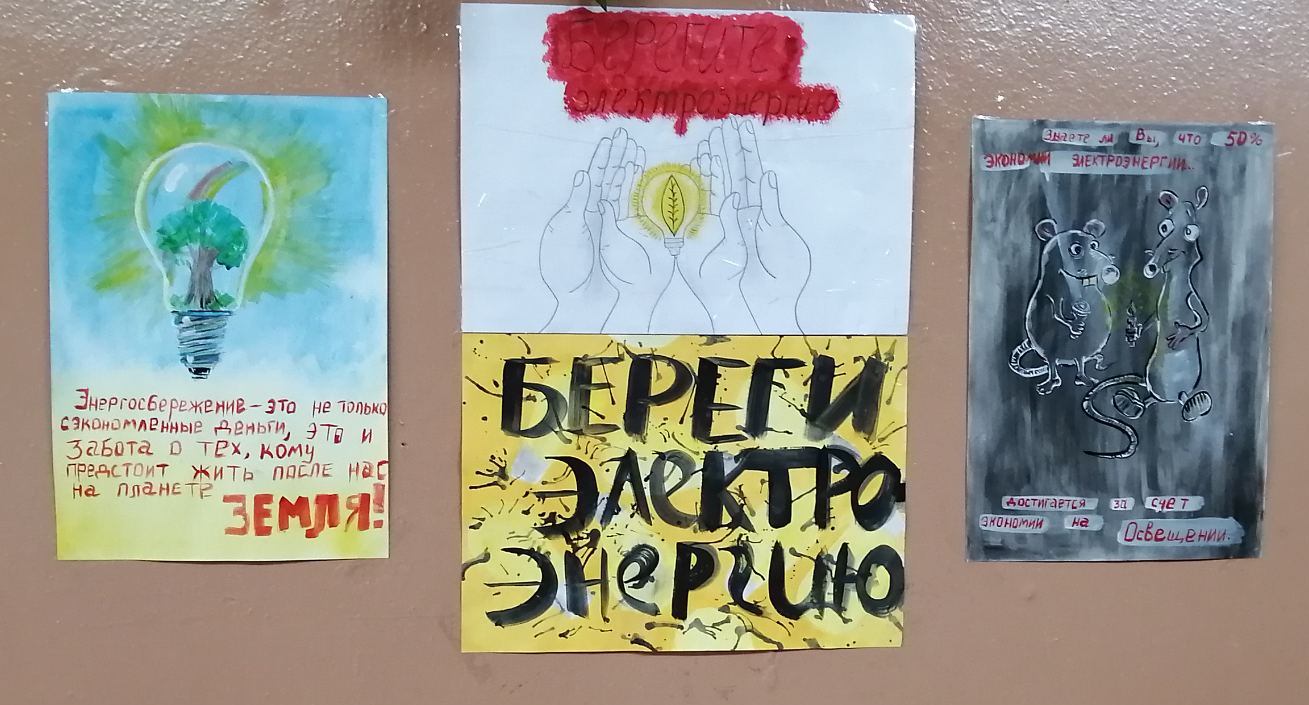 Энергосбережение - это не только
сэкономленные деньги, это и
забота о тех, кому
предстоит жить после нас
на планете
ЗЕМЛЯ!
Берегите
электроэнергию
БЕРЕГИ
ЭЛЕКТРО
ЭНЕРГИЮ
Знаете ли Вы, что 50%
экономии электроэнергии..
достигается за счет
экономии на Освещении.